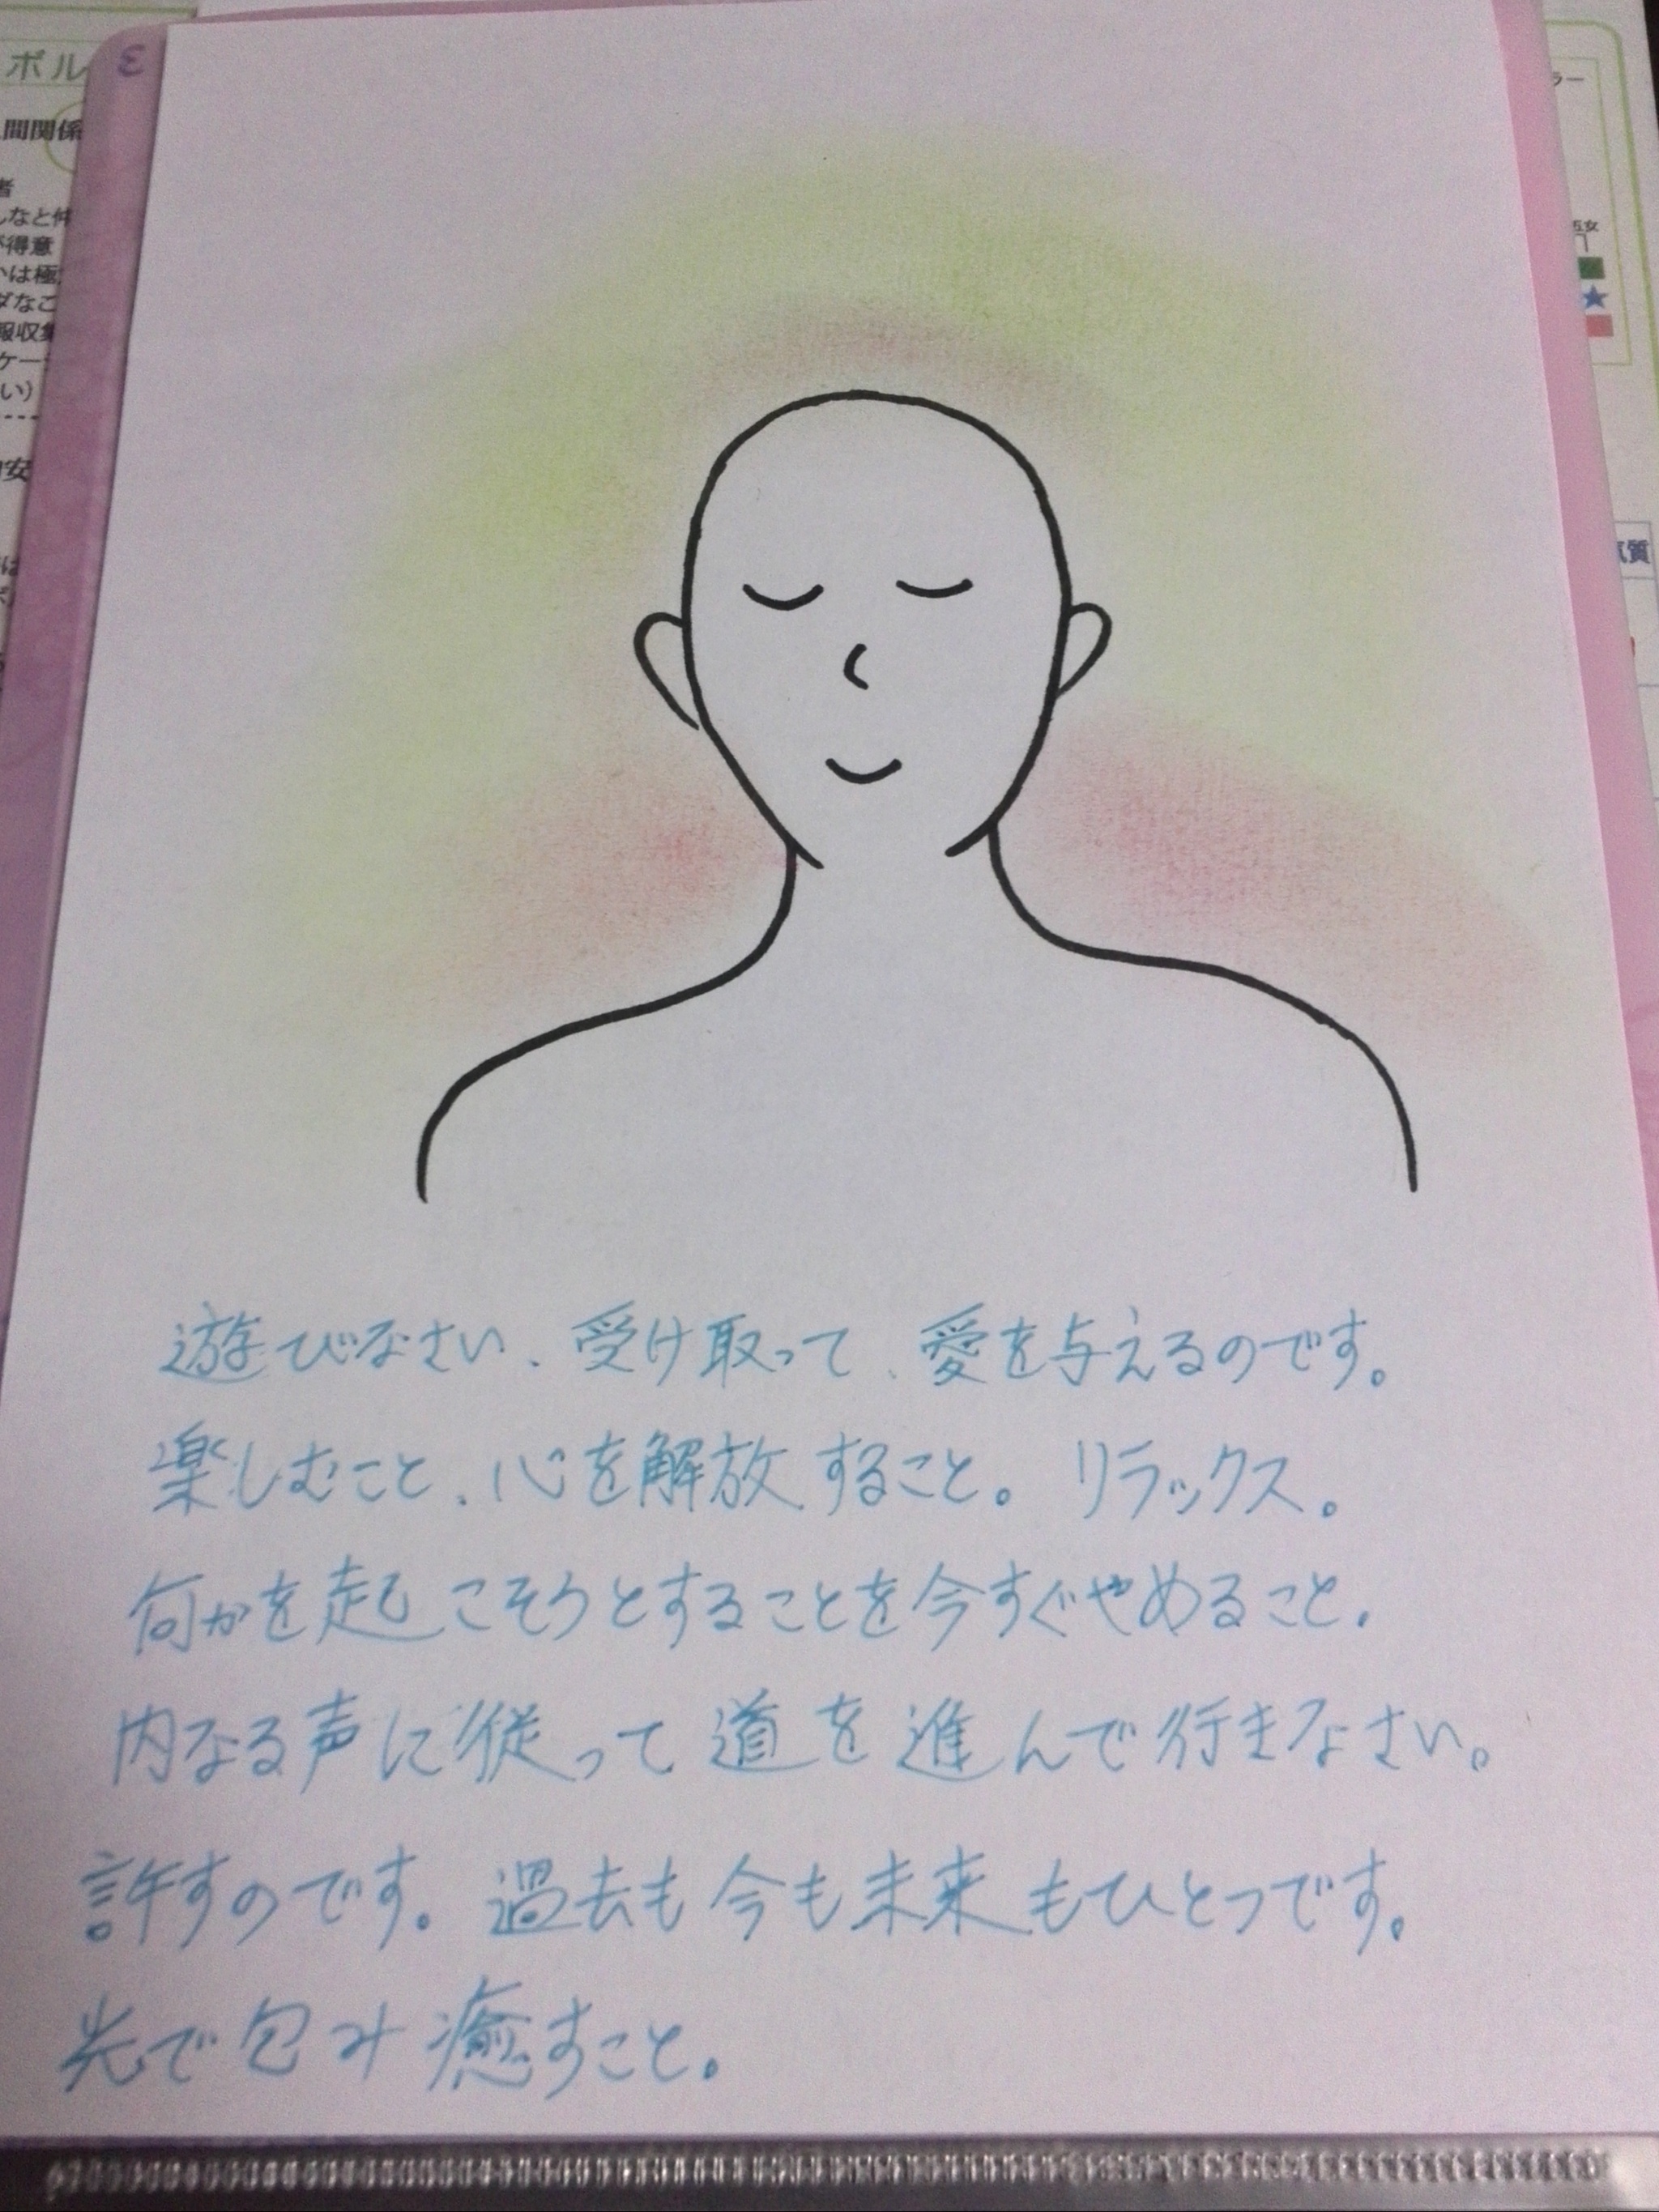 ボル
3
ラー
間関係
者
んなと仲
が得意
いは極
ダなこ
報収集
ケー
い）
安
気質
遊びなさい、受け取って、愛を与えるのです。
楽しむこと、心を解放すること。リラックス。
何かを起こそうとすることを今すぐやめること。
内なる声に従って道を進んで行きなさい。
許すのです。過去も今も未来もひとつです。
光で包み癒すこと。